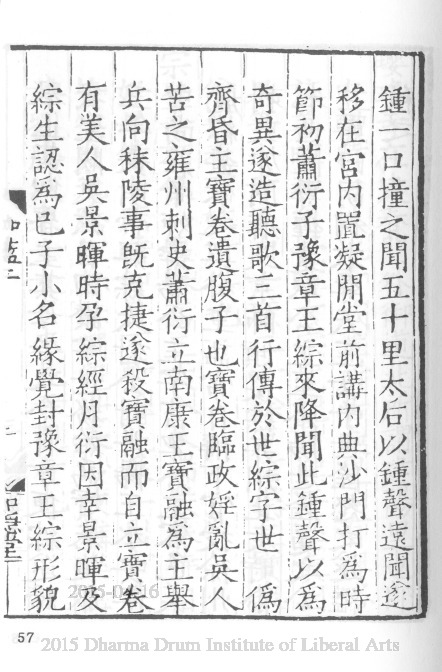 鍾一口撞之聞五十里太后以鍾聲遠聞遂
移在宮内置凝閒堂前講内典沙門打為時
節初蕭衍子豫章王綜來降聞此鍾聲以為
奇異遂造聽歌三首行傳於世綜字世 偽
齊昏主寶卷遺腹子也寶卷臨政婬亂吳人
苦之雍州刺史蕭衍立南康王寶融為王舉
兵向秣陵事旣克捷遂殺寶融而自立寶卷
有美人吳景暉時孕綜經月衍因幸景暉及
綜生認為巳子小名緣覺封豫章王綜形貌
57
2015 Dharma Drum Institute of Liberal Arts